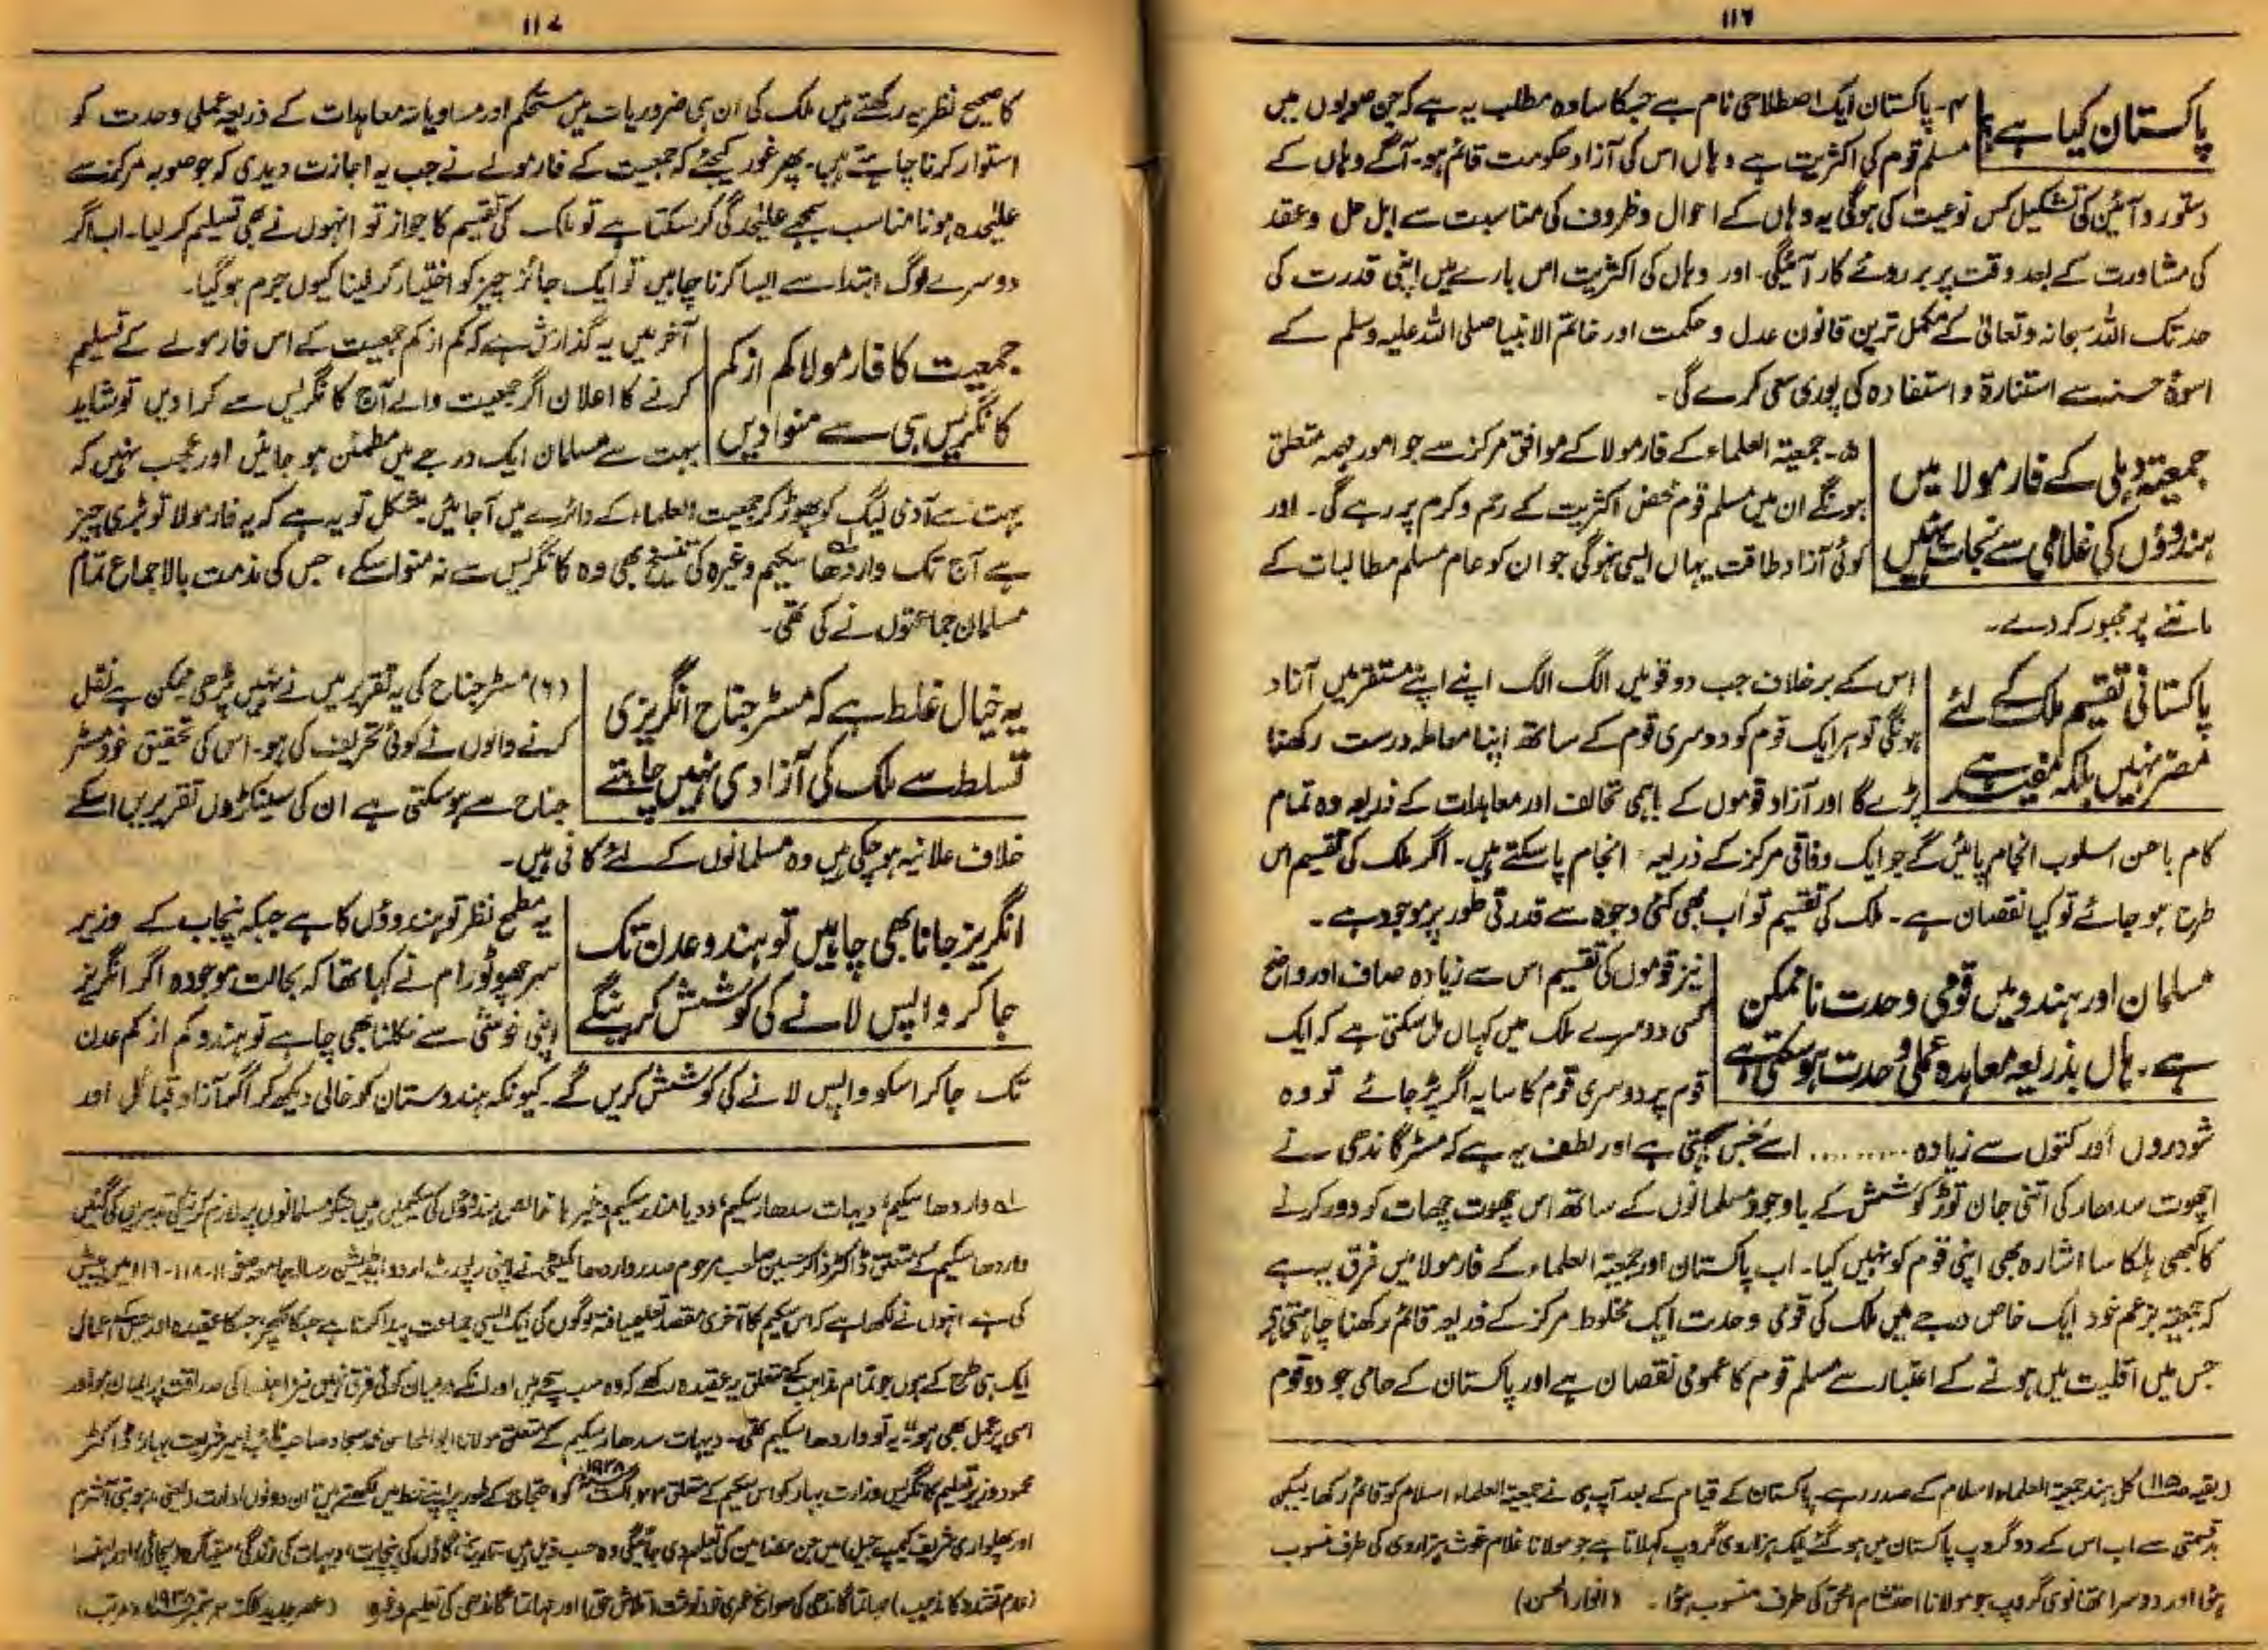 ۱۱۶
پاکستان کیا ہے
۴۔ پاکستان ایک اصطلاحی نام ہے جسکا سادہ مطلب یہ ہے کہ جن صوبوں میں
مسلم قوم کی اکثریت ہے وہاں اس کی آزاد حکومت قائم ہو۔ آگے وہاں کے
دستور و آئین کی تشکیل کس نوعیت کی ہوگی یہ وہاں کے احوال و ظروف کی مناسبت سے اہل حل و عقد
کی مشاورت کے بعد وقت پر بروئے کار آئیگی۔ اور وہاں کی اکثریت اس بارے میں اپنی قدرت کی
حد تک اللہ سبحانہ و تعالیٰ کے مکمل ترین قانون عدل و حکمت اور خاتم الانبیا صلی اللہ علیہ وسلم کے
اسوۂ حسنہ سے استنارۃ و استفادہ کی پوری سعی کرے گی۔
جمعیۃ دہلی کے فارمولا میں
ہندوؤں کی غلامی سے نجات نہیں
۵۔ جمعیۃ العلماء کے فارمولا کے موافق مرکز سے جو امور مہمہ متعلق
ہونگے ان میں مسلم قوم محض اکثریت کے رحم و کرم پر رہے گی۔ اور
کوئی آزاد طاقت یہاں ایسی نہوگی جو ان کو عام مسلم مطالبات کے
ماننے پر مجبور کردے۔
پاکستانی تقسیم ملک کے لئے
مضر نہیں بلکہ مفید ہے
اس کے برخلاف جب دو قومیں الگ الگ اپنے اپنے مستقر میں آزاد
ہونگی تو ہر ایک قوم کو دوسری قوم کے ساتھ اپنا معاملہ درست رکھنا
پڑے گا اور آزاد قوموں کے باہمی تحالف اور معاہدات کے ذریعہ وہ تمام
کام باحسن اسلوب انجام پائیں گے جو ایک وفاقی مرکز کے ذریعہ انجام پا سکتے ہیں۔ اگر ملک کی تقسیم اس
طرح ہو جائے تو کیا نقصان ہے۔ ملک کی تقسیم تو اب بھی کئی وجوہ سے قدرتی طور پر موجود ہے۔
مسلمان اور ہندو میں قومی وحدت ناممکن
ہے۔ ہاں بذریعہ معاہدہ عملی وحدت ہو سکتی ہے
نیز قوموں کی تقسیم اس سے زیادہ صاف اور واضح
کسی دوسرے ملک میں کہاں مل سکتی ہے کہ ایک
قوم پر دوسری قوم کا سایہ اگر پڑ جائے تو وہ
شودروں اور کتوں سے زیادہ .......... اسے نجس سمجھتی ہے اور لطف یہ ہے کہ مسٹر گاندھی نے
اچھوت سدھار کی اتنی جان توڑ کوشش کے باوجود مسلمانوں کے ساتھ اس چھوت چھات کو دور کرنے
کا کبھی ہلکا سا اشارہ بھی اپنی قوم کو نہیں کیا۔ اب پاکستان اور جمعیۃ العلماء کے فارمولا میں فرق یہ ہے
کہ جمعیۃ بزعم خود ایک خاص درجے میں ملک کی قومی وحدت ایک مخلوط مرکز کے ذریعہ قائم رکھنا چاہتی ہے
جس میں اقلیت میں ہونے کے اعتبار سے مسلم قوم کا عمومی نقصان ہے اور پاکستان کے حامی جو دو قوم
(بقیہ صفحہ ۱۱۵) کل ہند جمعیۃ العلماء اسلام کے صدر رہے۔ پاکستان کے قیام کے بعد آپ ہی نے جمعیۃ العلماء اسلام کو قائم رکھا لیکن
بدقسمتی سے اب اس کے دو گروپ پاکستان میں ہو گئے ایک ہزاروی گروپ کہلاتا ہے جو مولانا غلام غوث ہزاروی کی طرف منسوب
ہوا اور دوسرا تھانوی گروپ جو مولانا احتشام الحق کی طرف منسوب ہوا۔ (انوار الحسن)
۱۱۷
کا صحیح نظریہ رکھتے ہیں ملک کی ان ہی ضروریات میں مستحکم اور مساویانہ معاہدات کے ذریعہ عملی وحدت کو
استوار کرنا چاہتے ہیں۔ پھر غور کیجئے کہ جمعیت کے فارمولے نے جب یہ اجازت دیدی کہ جو صوبہ مرکز سے
علیٰحدہ ہونا مناسب سمجھے علیٰحدگی کر سکتا ہے تو ملک کی تقسیم کا جواز تو انہوں نے بھی تسلیم کر لیا۔ اب اگر
دوسرے لوگ ابتدا سے ایسا کرنا چاہیں تو ایک جائز چیز کو اختیار کر لینا کیوں جرم ہو گیا۔
جمعیت کا فارمولا کم از کم
کانگریس ہی سے منوا دیں
آخر میں یہ گذارش ہے کہ کم از کم جمعیت کے اس فارمولے کے تسلیم
کرنے کا اعلان اگر جمعیت والے آج کانگریس سے کرا دیں تو شاید
بہت سے مسلمان ایک درجے میں مطمئن ہو جائیں اور عجب نہیں کہ
بہت سے آدمی لیگ کو چھوڑ کر جمعیت العلماء کے دائرے میں آجائیں۔ مشکل تو یہ ہے کہ یہ فارمولا تو بڑی چیز
ہے آج تک واردھا سکیم وغیرہ کی تنسیخ بھی وہ کانگریس سے نہ منوا سکے، جس کی مذمت بالاجماع تمام
مسلمان جماعتوں نے کی تھی۔
یہ خیال غلط ہے کہ مسٹر جناح انگریزی
تسلط سے ملک کی آزادی نہیں چاہتے
(۶) مسٹر جناح کی یہ تقریر میں نے نہیں پڑھی ممکن ہے نقل
کرنے والوں نے کوئی تحریف کی ہو۔ اس کی تحقیق خود مسٹر
جناح سے ہو سکتی ہے ان کی سینکڑوں تقریریں اسکے
خلاف علانیہ ہو چکی ہیں وہ مسلمانوں کے لئے کافی ہیں۔
انگریز جانا بھی چاہیں تو ہندو عدن تک
جا کر واپس لانے کی کوشش کرینگے
یہ مطمح نظر تو ہندوؤں کا ہے جبکہ پنجاب کے وزیر
سر چھوٹو رام نے کہا تھا کہ بحالت موجودہ اگر انگریز
اپنی خوشی سے نکلنا بھی چاہے تو ہندو کم از کم عدن
تک جا کر اسکو واپس لانے کی کوشش کریں گے۔ کیونکہ ہندوستان کو خالی دیکھ کر اگر آزاد قبائل اور
لہ واردھا سکیم، دیہات سدھار سکیم، ودیا مندر سکیم وغیرہا خالص ہندوؤں کی سکیمیں ہیں جنکو مسلمانوں پر لازم کرنیکی تدبیریں کی گئیں
واردھا سکیم کے متعلق ڈاکٹر ذاکر حسین صاحب مرحوم صدر واردھا کمیٹی نے اپنی رپورٹ اردو ایڈیشن رسالہ جامعہ صفحہ ۱۱۸-۱۱۹ میں پیش
کی ہے انہوں نے لکھا ہے کہ اس سکیم کا آخری مقصد تعلیم یافتہ لوگوں کی ایک ایسی جماعت پیدا کرنا ہے جسکا کلچر، جسکا عقیدہ اور جسکے اعمال
ایک ہی طرح کے ہوں جو تمام مذاہب کے متعلق یہ عقیدہ رکھے کہ وہ سب سچے ہیں اور انکے درمیان کوئی فرق نہیں نیز اہنسا کی صداقت پر ایمان ہو اور
اسی پر عمل بھی ہو۔" یہ تو واردھا سکیم تھی۔ دیہات سدھار سکیم کے متعلق مولانا ابوالمحاسن محمد سجاد صاحب نائب امیر شریعت بہار ڈاکٹر
محمود وزیر تعلیم کانگریس وزارت بہار کو اس سکیم کے متعلق اگست ۱۹۳۸ کو احتجاج کے طور پر اپنے خط میں لکھتے ہیں ان دونوں ادارات
اور پھلواری شریف کیمپ جیل) میں جن مضامین کی تعلیم دی جائیگی وہ حسب ذیل ہیں۔ گاؤں کی پنچایت، دیہات کی زندگی، ستیاگرہ (سچائی) اور اہنسا
(عدم تشدد کا مذہب) مہاتما گاندھی کی سوانح عمری خود نوشت (تلاش حق) اور مہاتما گاندھی کی تعلیم وغیرہ (عصر جدید کلکتہ ستمبر ۱۹۳۸ء) (مرتب)